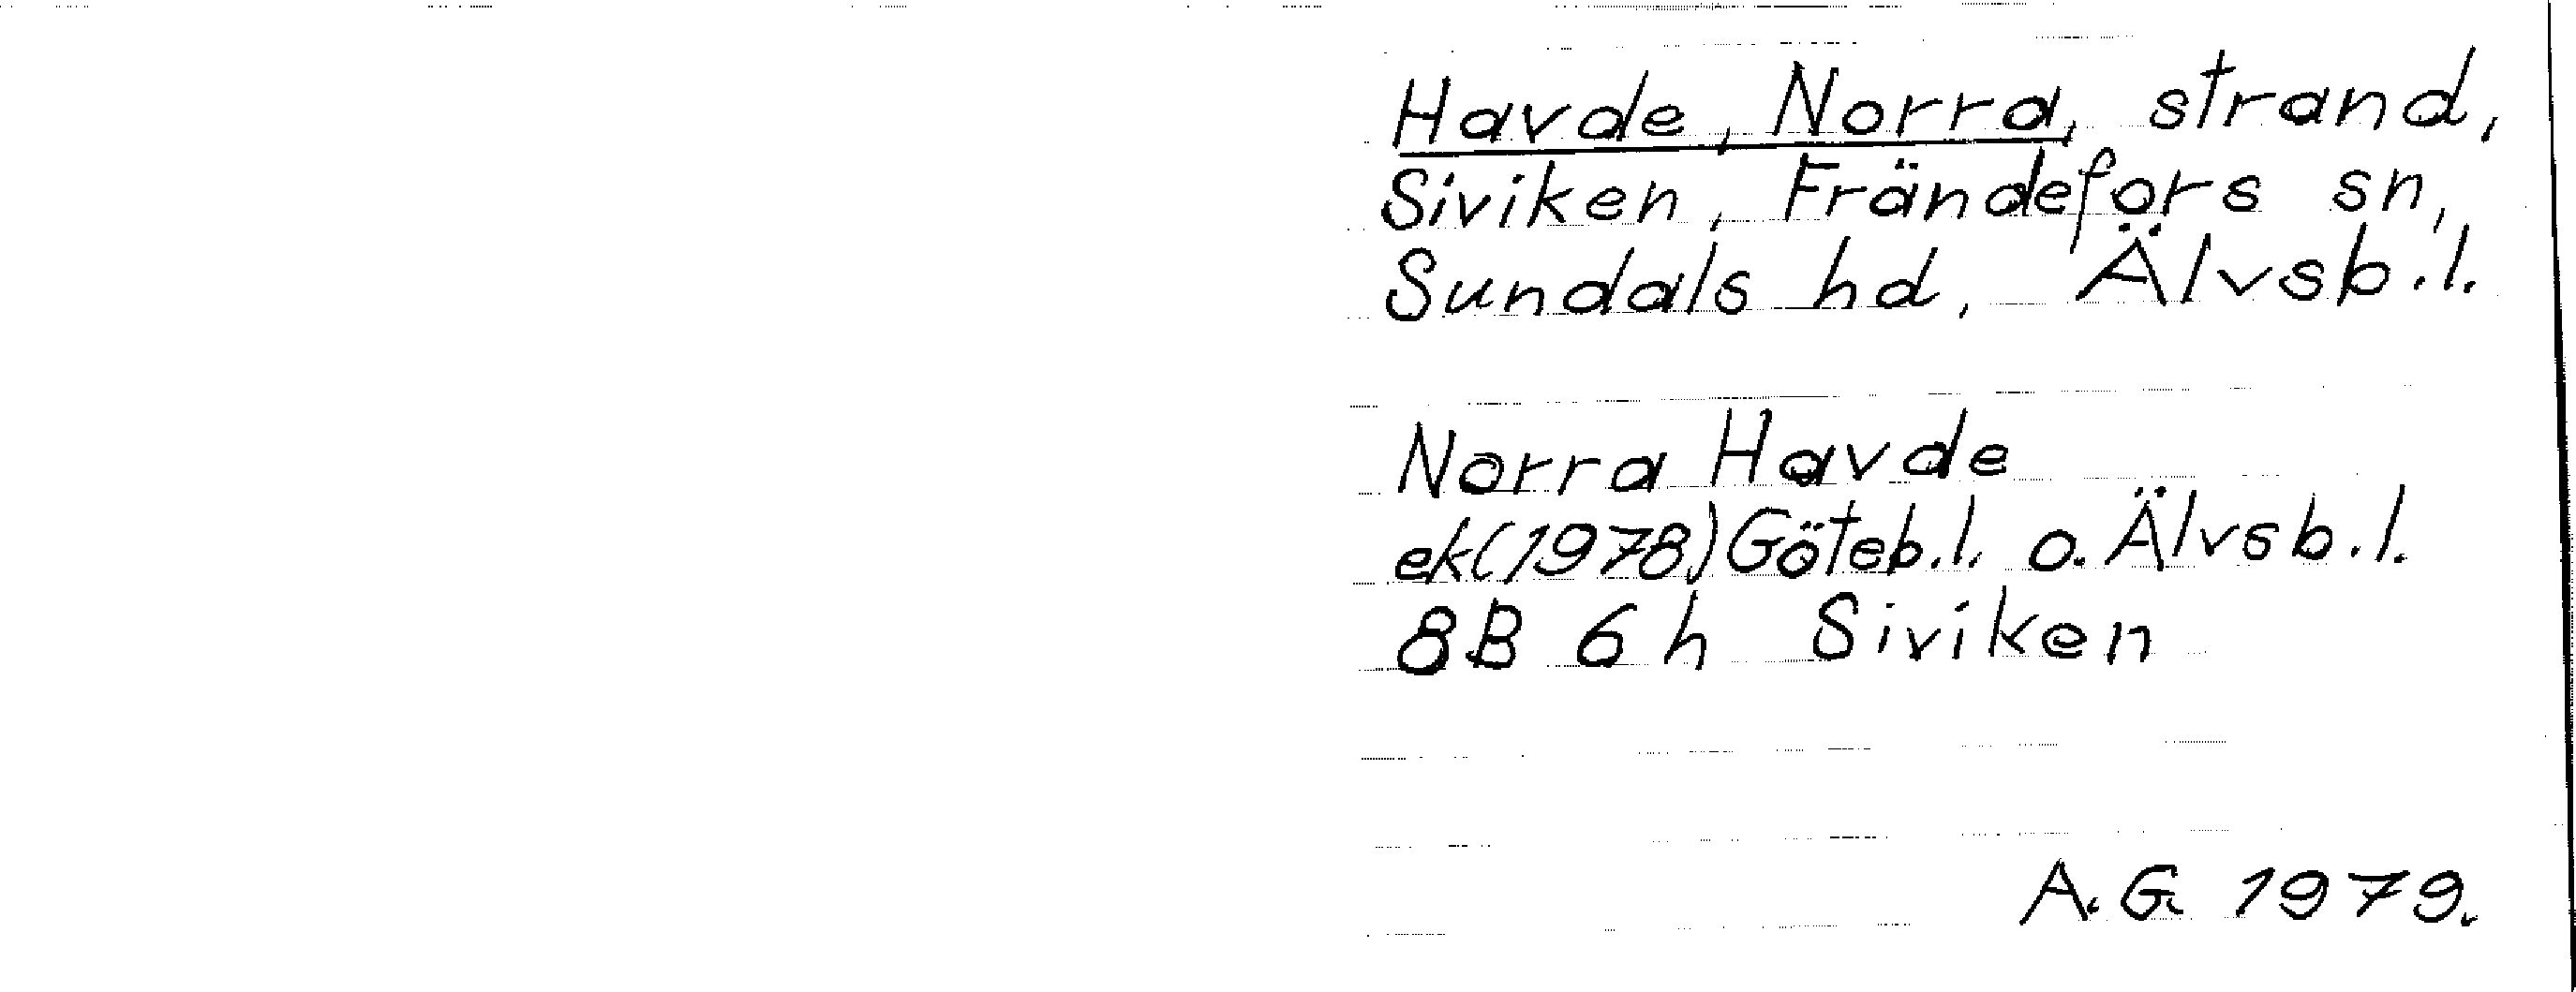 Havde, Norra, strand,
Siviken, Frändefors sn,
Sundals hd, Älvsb.l.
Norra Havde
ek(1978) Göteb.l. o. Älvsb.l.
8B 6h Siviken
A.G. 1979.